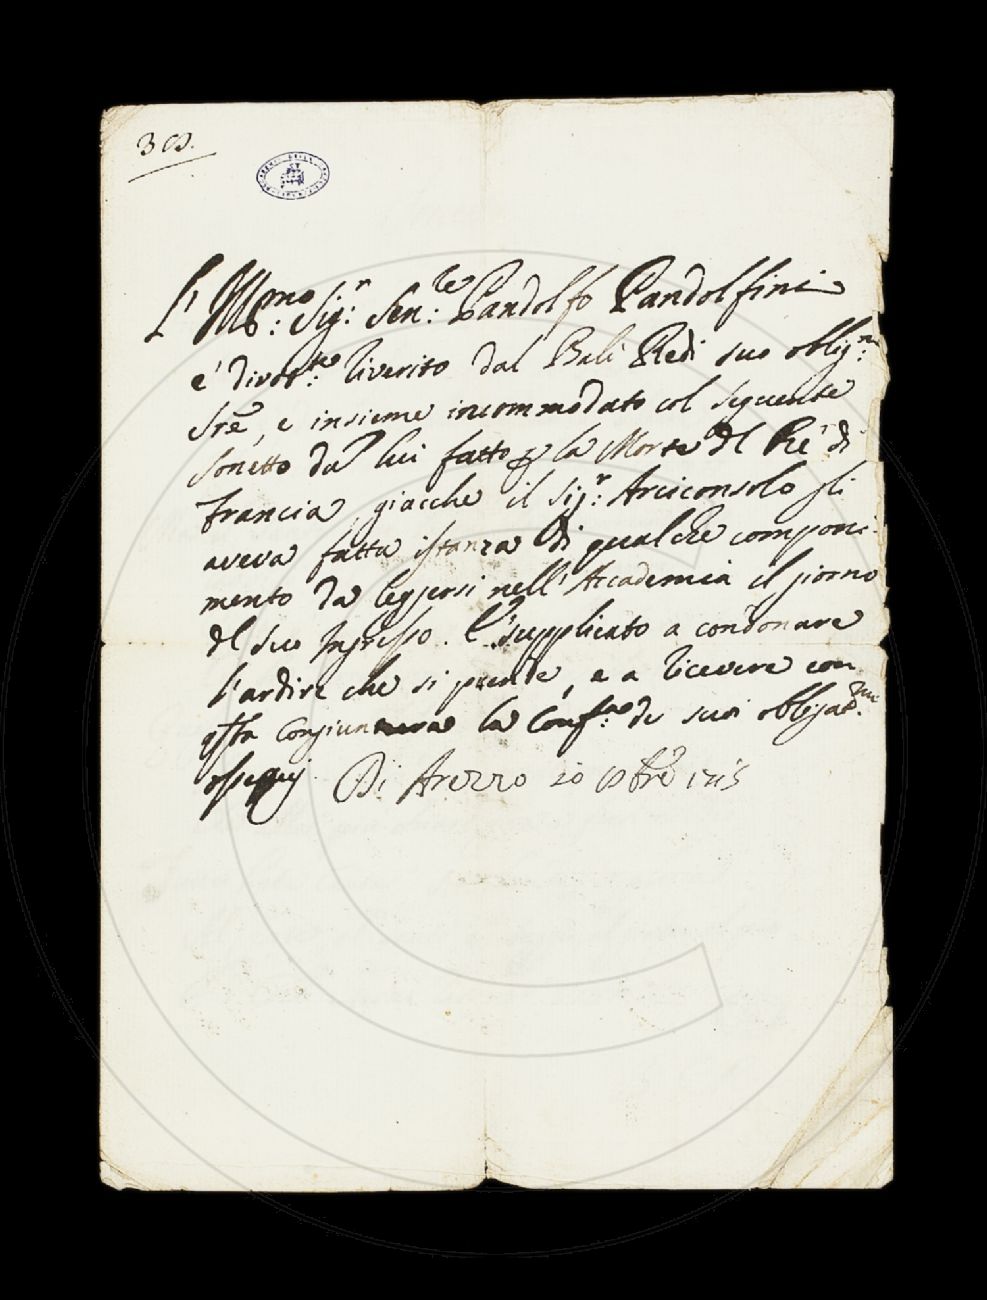 303.
L'Ill:mo Sig:r Sen:re Pandolfo Pandolfini
è divot:te riverito dal Balì Redi suo oblig:mo
Sre, e insieme incommodato col seguente
sonetto da lui fatto p la Morte del Rè di
Francia, giacche il Sig:r Arciconsolo gli
aveva fatta istanza di qualche componi-
mento da leggersi nell'Accademia il giorno
del suo Ingresso. È supplicato a condonare
l'ardire che si prende, e a ricevere con
qsta congiuntura la di suoi obbligat:mi
ossequj. Di Arezzo 20 8bre 1715